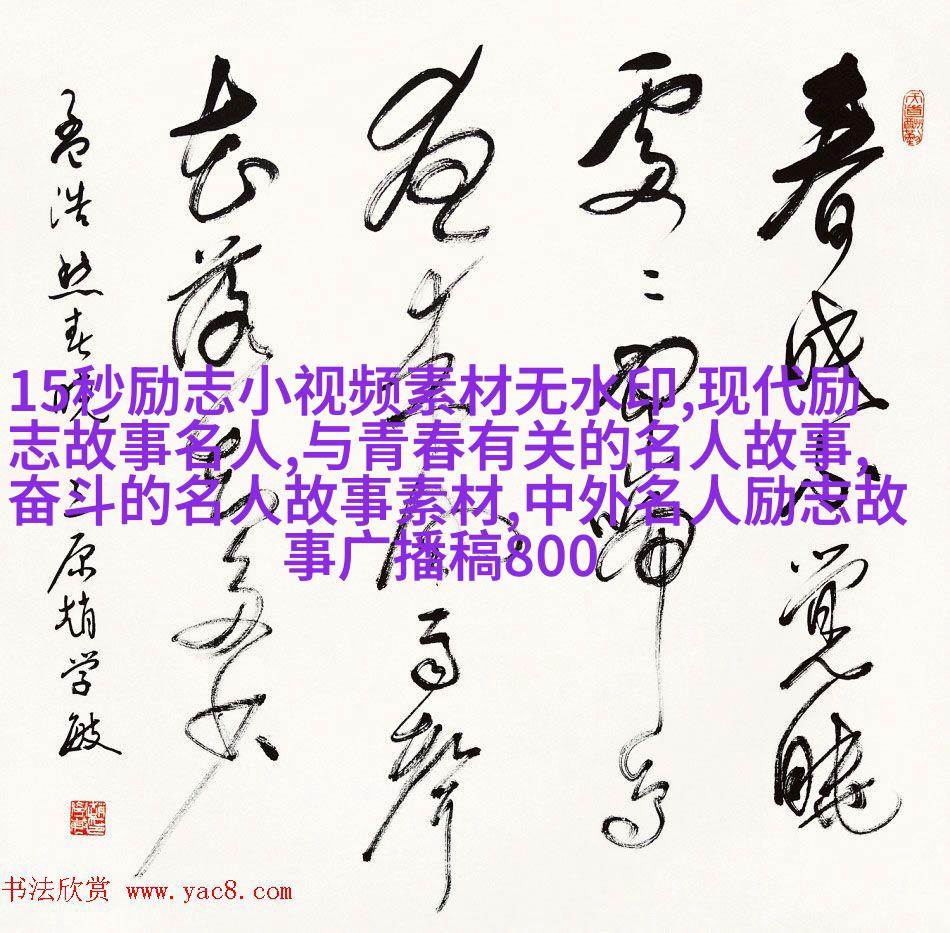 春眠不觉晓
處々聞啼鳥
夜来風雨聲
花落知多少
孟浩然春晓 三原趙学敏
天道酬勤
15秒励志小视频素材无水印,现代励
志故事名人,与青春有关的名人故事,
奋斗的名人故事素材,中外名人励志故
事广播稿800
书法欣赏 www.yac8.com